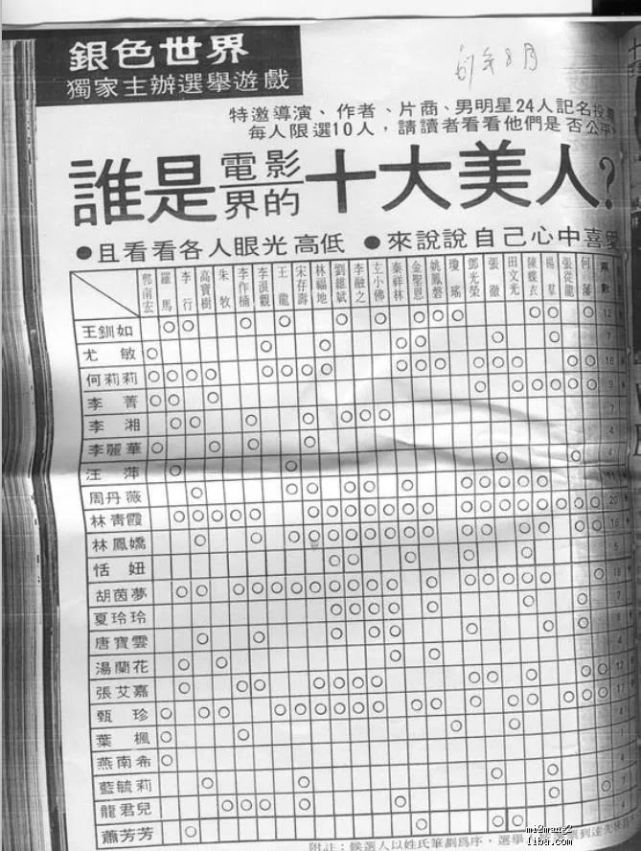 銀色世界
獨家主辦選舉遊戲
67年8月
特邀導演、作者、片商、男明星24人記名投票
每人限選10人，請讀者看看他們是否公平
誰是電影界的十大美人?
●且看看各人眼光高低 ●來說說自己心中喜愛
郭南宏 羅馬 李行 高寶樹 朱牧 李作楠 王龍 宋存壽 林福地 劉維斌 李融之 秦祥林 金聖恩 姚鳳磐 瓊瑤 鄧光榮 張徹 田文光 陳蝶衣 楊羣 張從龍 何藩 票數
王釧如
尤敏
何莉莉
李菁
李湘
李麗華
汪萍
周丹薇
林青霞
林鳳嬌
恬妞
胡茵夢
夏玲玲
唐寶雲
湯蘭花
張艾嘉
甄珍
葉楓
燕南希
藍毓莉
龍君兒
蕭芳芳
附註：候選人以姓氏筆劃為序，選舉
liba.com